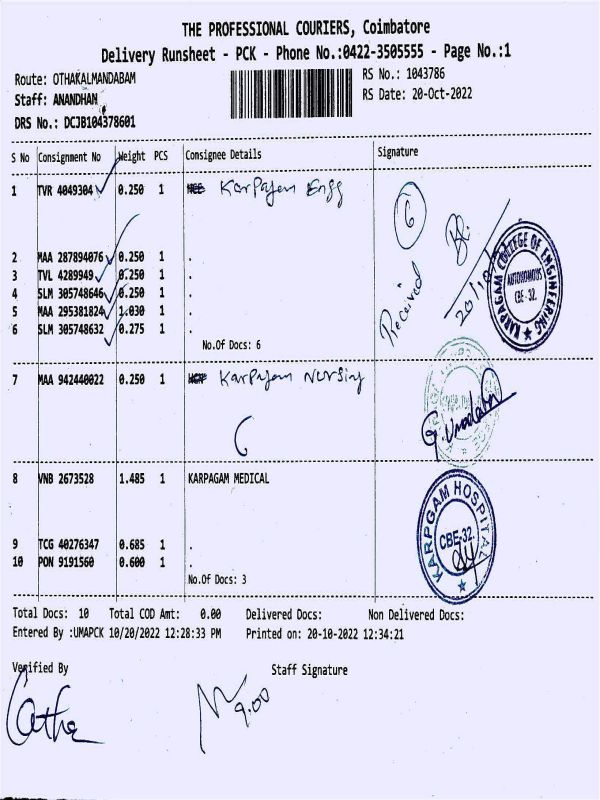 THE PROFESSIONAL COURIERS, Coimbatore
Delivery Runsheet - PCK - Phone No.:0422-3505555 - Page No.:1
Route: OTHAKALMANDABAM
RS No.: 1043786
Staff: ANANDHAN
RS Date: 20-Oct-2022
DRS No.: DCJB104378601
S No Consignment No Weight PCS Consignee Details Signature
1 TVR 4049304 0.250 1 Karpagam Engg
6
2 MAA 287894076 0.250 1 .
3 TVL 4289949 0.250 1 .
4 SLM 305748646 0.250 1 .
5 MAA 295381824 1.030 1 .
6 SLM 305748632 0.275 1 .
No.Of Docs: 6
Received
KARPAGAM COLLEGE OF ENGINEERING
AUTONOMOUS
CBE-32.
7 MAA 942440022 0.250 1 Karpagam Nursing
8 VNB 2673528 1.485 1 KARPAGAM MEDICAL
9 TCG 40276347 0.685 1 .
10 PON 9191560 0.600 1 .
No.Of Docs: 3
KARPGAM HOSPITAL
CBE-32.
Total Docs: 10 Total COD Amt: 0.00 Delivered Docs: Non Delivered Docs:
Entered By :UMAPCK 10/20/2022 12:28:33 PM Printed on: 20-10-2022 12:34:21
Verified By Staff Signature
9.00